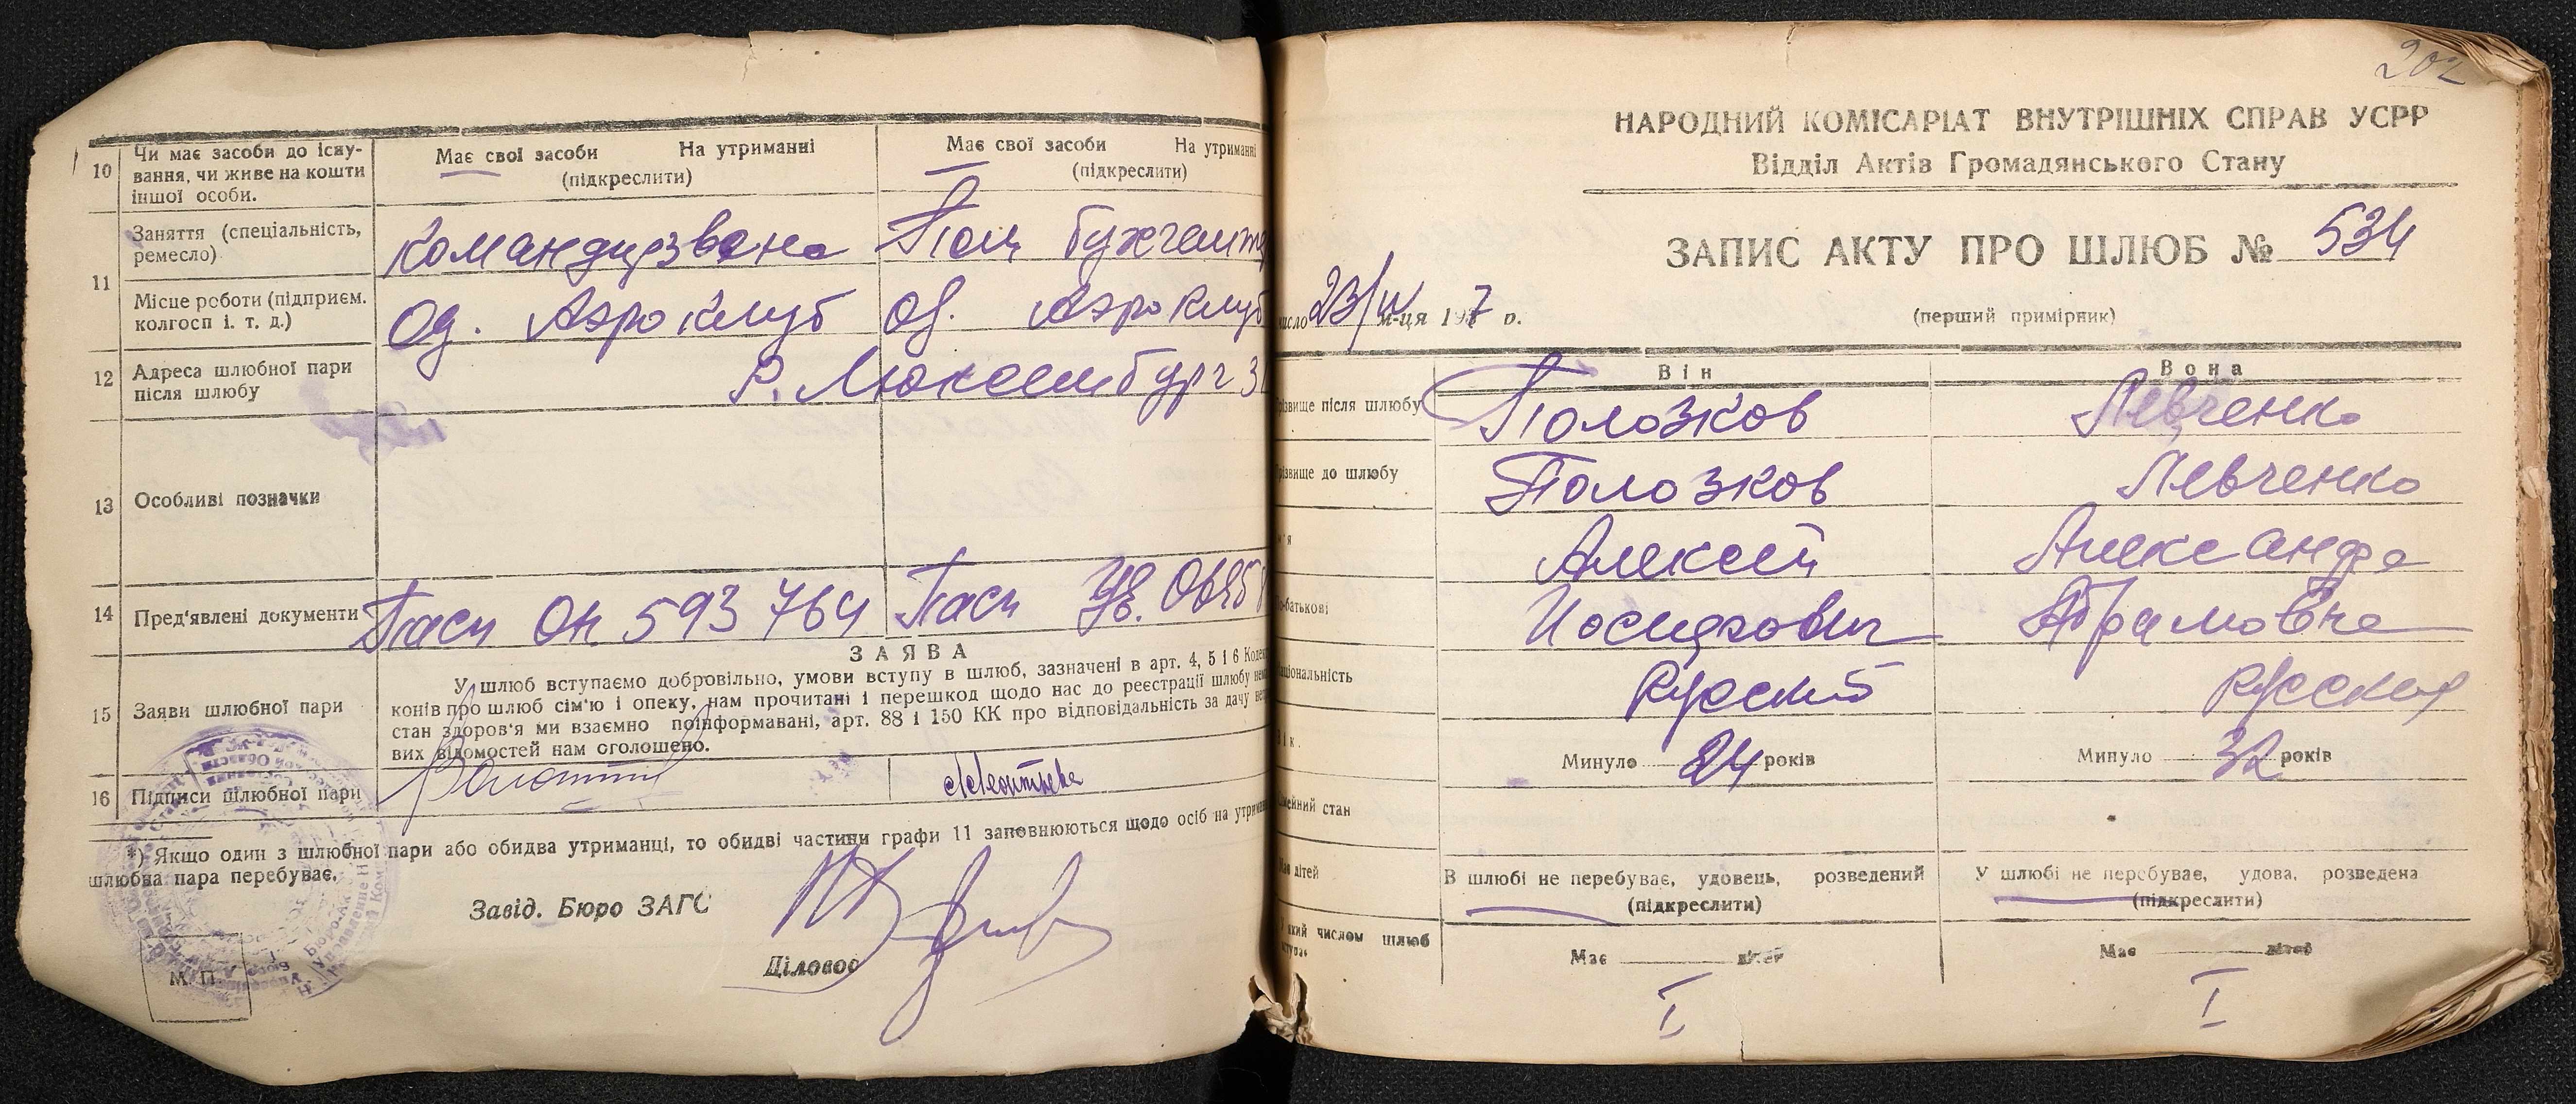 10 Чи має засоби до існу-
вання, чи живе на кошти
іншої особи.
Має свої засоби На утриманні
(підкреслити)
Має свої засоби На утриманні
(підкреслити)
11 Заняття (спеціальність,
ремесло)
Командир звена
Пом бухгалте
Місце роботи (підприєм.
колгосп і. т. д.)
Од. Аэроклуб
Од. Аэроклуб
12 Адреса шлюбної пари
після шлюбу
Р. Люксембург 3
13 Особливі позначки
14 Пред'явлені документи
Пасп ОК 593764
Пасп
15 Заяви шлюбної пари
ЗАЯВА
У шлюб вступаємо добровільно, умови вступу в шлюб, зазначені в арт. 4, 5 і 6 Кодек
конів про шлюб сім'ю і опеку, нам прочитані і перешкод щодо нас до реєстрації шлюбу нема
стан здоров'я ми взаємно поінформавані, арт. 88 і 150 КК про відповідальність за дачу
вих відомостей нам оголошено.
16 Підписи шлюбної пари
*) Якщо один з шлюбної пари або обидва утриманці, то обидві частини графи 11 заповнюються щодо осіб на утриман
шлюбна пара перебуває.
Завід. Бюро ЗАГС
Діловод
М. П.
202
НАРОДНИЙ КОМІСАРІАТ ВНУТРІШНІХ СПРАВ УСРР
Відділ Актів Громадянського Стану
ЗАПИС АКТУ ПРО ШЛЮБ № 534
число 23/IV м-ця 1937 р.
(перший примірник)
Він Вона
різвище після шлюбу Полозков Левченко
різвище до шлюбу Полозков Левченко
м'я Алексей Александра
о-батькові Иосифович Абрамовна
аціональність Русский Русская
Вік. Минуло 24 років Минуло 32 років
імейний стан
В шлюбі не перебуває, удовець, розведений
(підкреслити)
У шлюбі не перебуває, удова, розведена
(підкреслити)
Має дітей
Має дітей Має дітей
який числом шлюб
I I